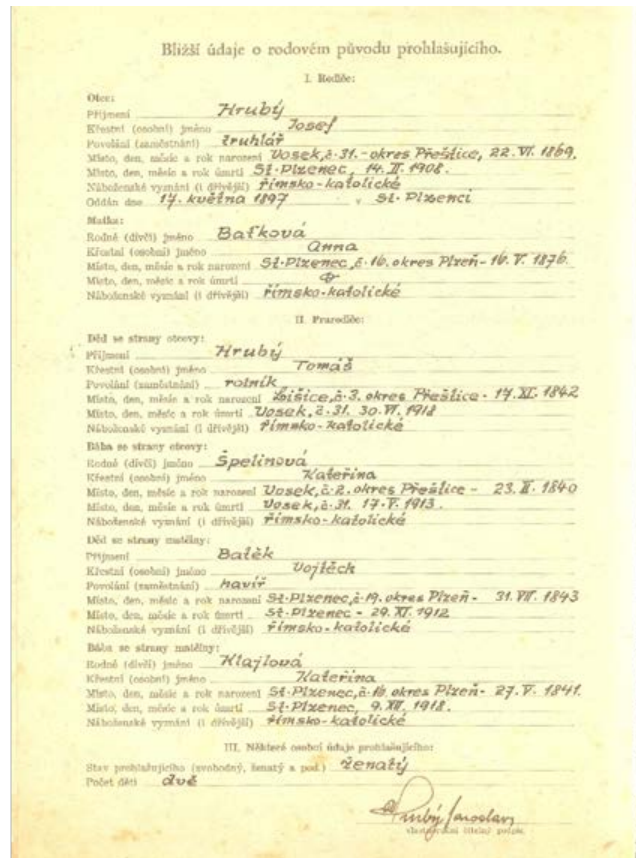 Bližší údaje o rodovém původu prohlašujícího.
I. Rodiče:
Otec:
Příjmení Hrubý
Křestní (osobní) jméno Josef
Povolání (zaměstnání) truhlář
Místo, den, měsíc a rok narození Vosek, č. 31. - okres Přeštice, 22. VI. 1869.
Místo, den, měsíc a rok úmrtí St. Plzenec, 14. II. 1908.
Náboženské vyznání (i dřívější) římsko-katolické
Oddán dne 17. května 1897 v St. Plzenci
Matka:
Rodné (dívčí) jméno Baťková
Křestní (osobní) jméno Anna
Místo, den, měsíc a rok narození St. Plzenec, č. 16. okres Plzeň - 16. V. 1876.
Místo, den, měsíc a rok úmrtí
Náboženské vyznání (i dřívější) římsko-katolické
II. Prarodiče:
Děd se strany otcovy:
Příjmení Hrubý
Křestní (osobní) jméno Tomáš
Povolání (zaměstnání) rolník
Místo, den, měsíc a rok narození Lišice, č. 3. okres Přeštice - 17. XI. 1842
Místo, den, měsíc a rok úmrtí Vosek, č. 31. 30. VI. 1918
Náboženské vyznání (i dřívější) římsko-katolické
Bába se strany otcovy:
Rodné (dívčí) jméno Špelinová
Křestní (osobní) jméno Kateřina
Místo, den, měsíc a rok narození Vosek, č. 2. okres Přeštice - 23. II. 1840
Místo, den, měsíc a rok úmrtí Vosek, č. 31. 17. V. 1913.
Náboženské vyznání (i dřívější) římsko-katolické
Děd se strany matčiny:
Příjmení Batěk
Křestní (osobní) jméno Vojtěch
Povolání (zaměstnání) havíř
Místo, den, měsíc a rok narození St. Plzenec, č. 19. okres Plzeň - 31. VII. 1843
Místo, den, měsíc a rok úmrtí St. Plzenec - 29. XI. 1912
Náboženské vyznání (i dřívější) římsko-katolické
Bába se strany matčiny:
Rodné (dívčí) jméno Klajlová
Křestní (osobní) jméno Kateřina
Místo, den, měsíc a rok narození St. Plzenec, č. 16. okres Plzeň - 27. V. 1841.
Místo, den, měsíc a rok úmrtí St. Plzenec, 9. XII. 1918.
Náboženské vyznání (i dřívější) římsko-katolické
III. Některé osobní údaje prohlašujícího:
Stav prohlašujícího (svobodný, ženatý a pod.) ženatý
Počet dětí dvě
Hrubý Jaroslav
vlastnoruční čitelný podpis.